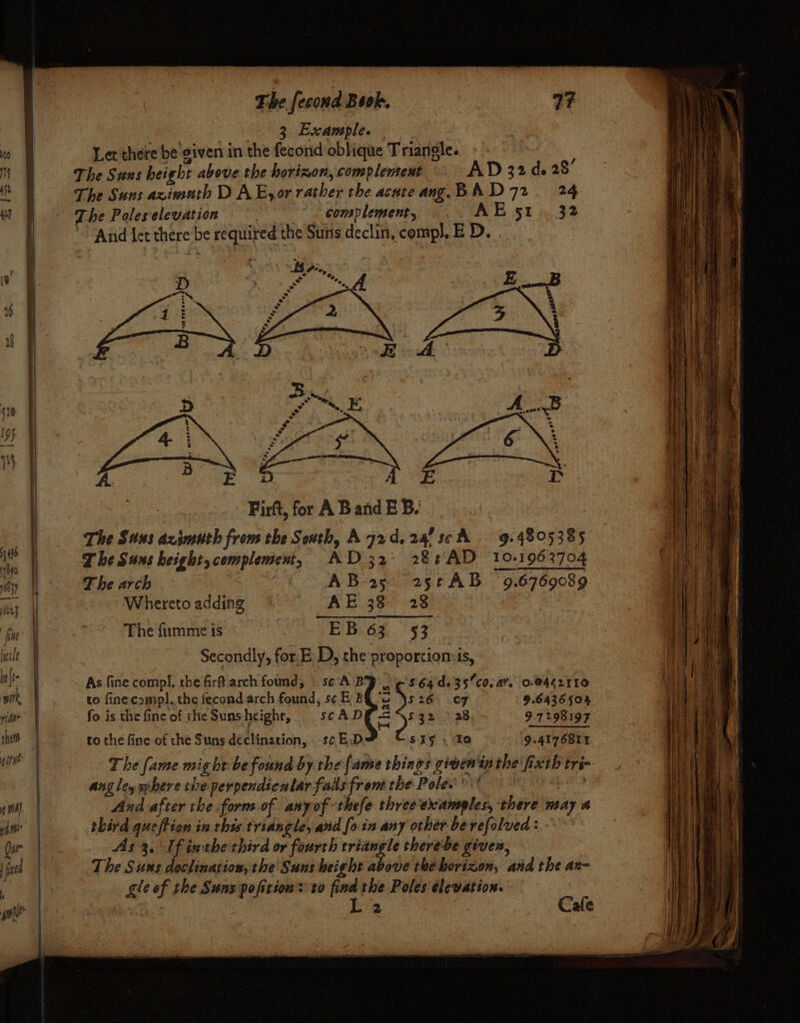 The second Book. 77
3. Example.
Let there be given in the second oblique Triangle.
The Suns height above the horizon, complement AD 32 d. 28′
The Suns azimuth D A E, or rather the acute ang. B A D 72 24
The Poles elevation complement, AE 51 32
And let there be required the Suns declin, compl. E D.
D B A E B
1 2 3
E B A D E A D
D B E A B
4 5 6
A B E D A E D
First, for A B and E B.
The Suns azimuth from the South, A 72 d. 24′ sc A 9.4805385
The Suns height, complement, AD 32 28 t AD 10.1963704
The arch AB 25 25 t AB 9.6769089
Whereto adding AE 38 28
The summe is EB 63 53
Secondly, for E D, the proportion is,
As sine compl. the first arch found, sc A B s 64 d. 35′ co. ar. 0.0442110
to sine compl. the second arch found, sc E B s 26 07 9.6436504
so is the sine of the Suns height, sc A D s 32 28 9.7298197
to the sine of the Suns declination, sc E D s 15 10 9.4176811
The same might be found by the same things given in the sixth tri-
angle, where the perpendicular falls from the Pole.
And after the form of any of these three examples, there may a
third question in this triangle, and so in any other be resolved:
As 3. If in the third or fourth triangle there be given,
The Suns declination, the Suns height above the horizon, and the an-
gle of the Suns position: to find the Poles elevation.
L 2 Case